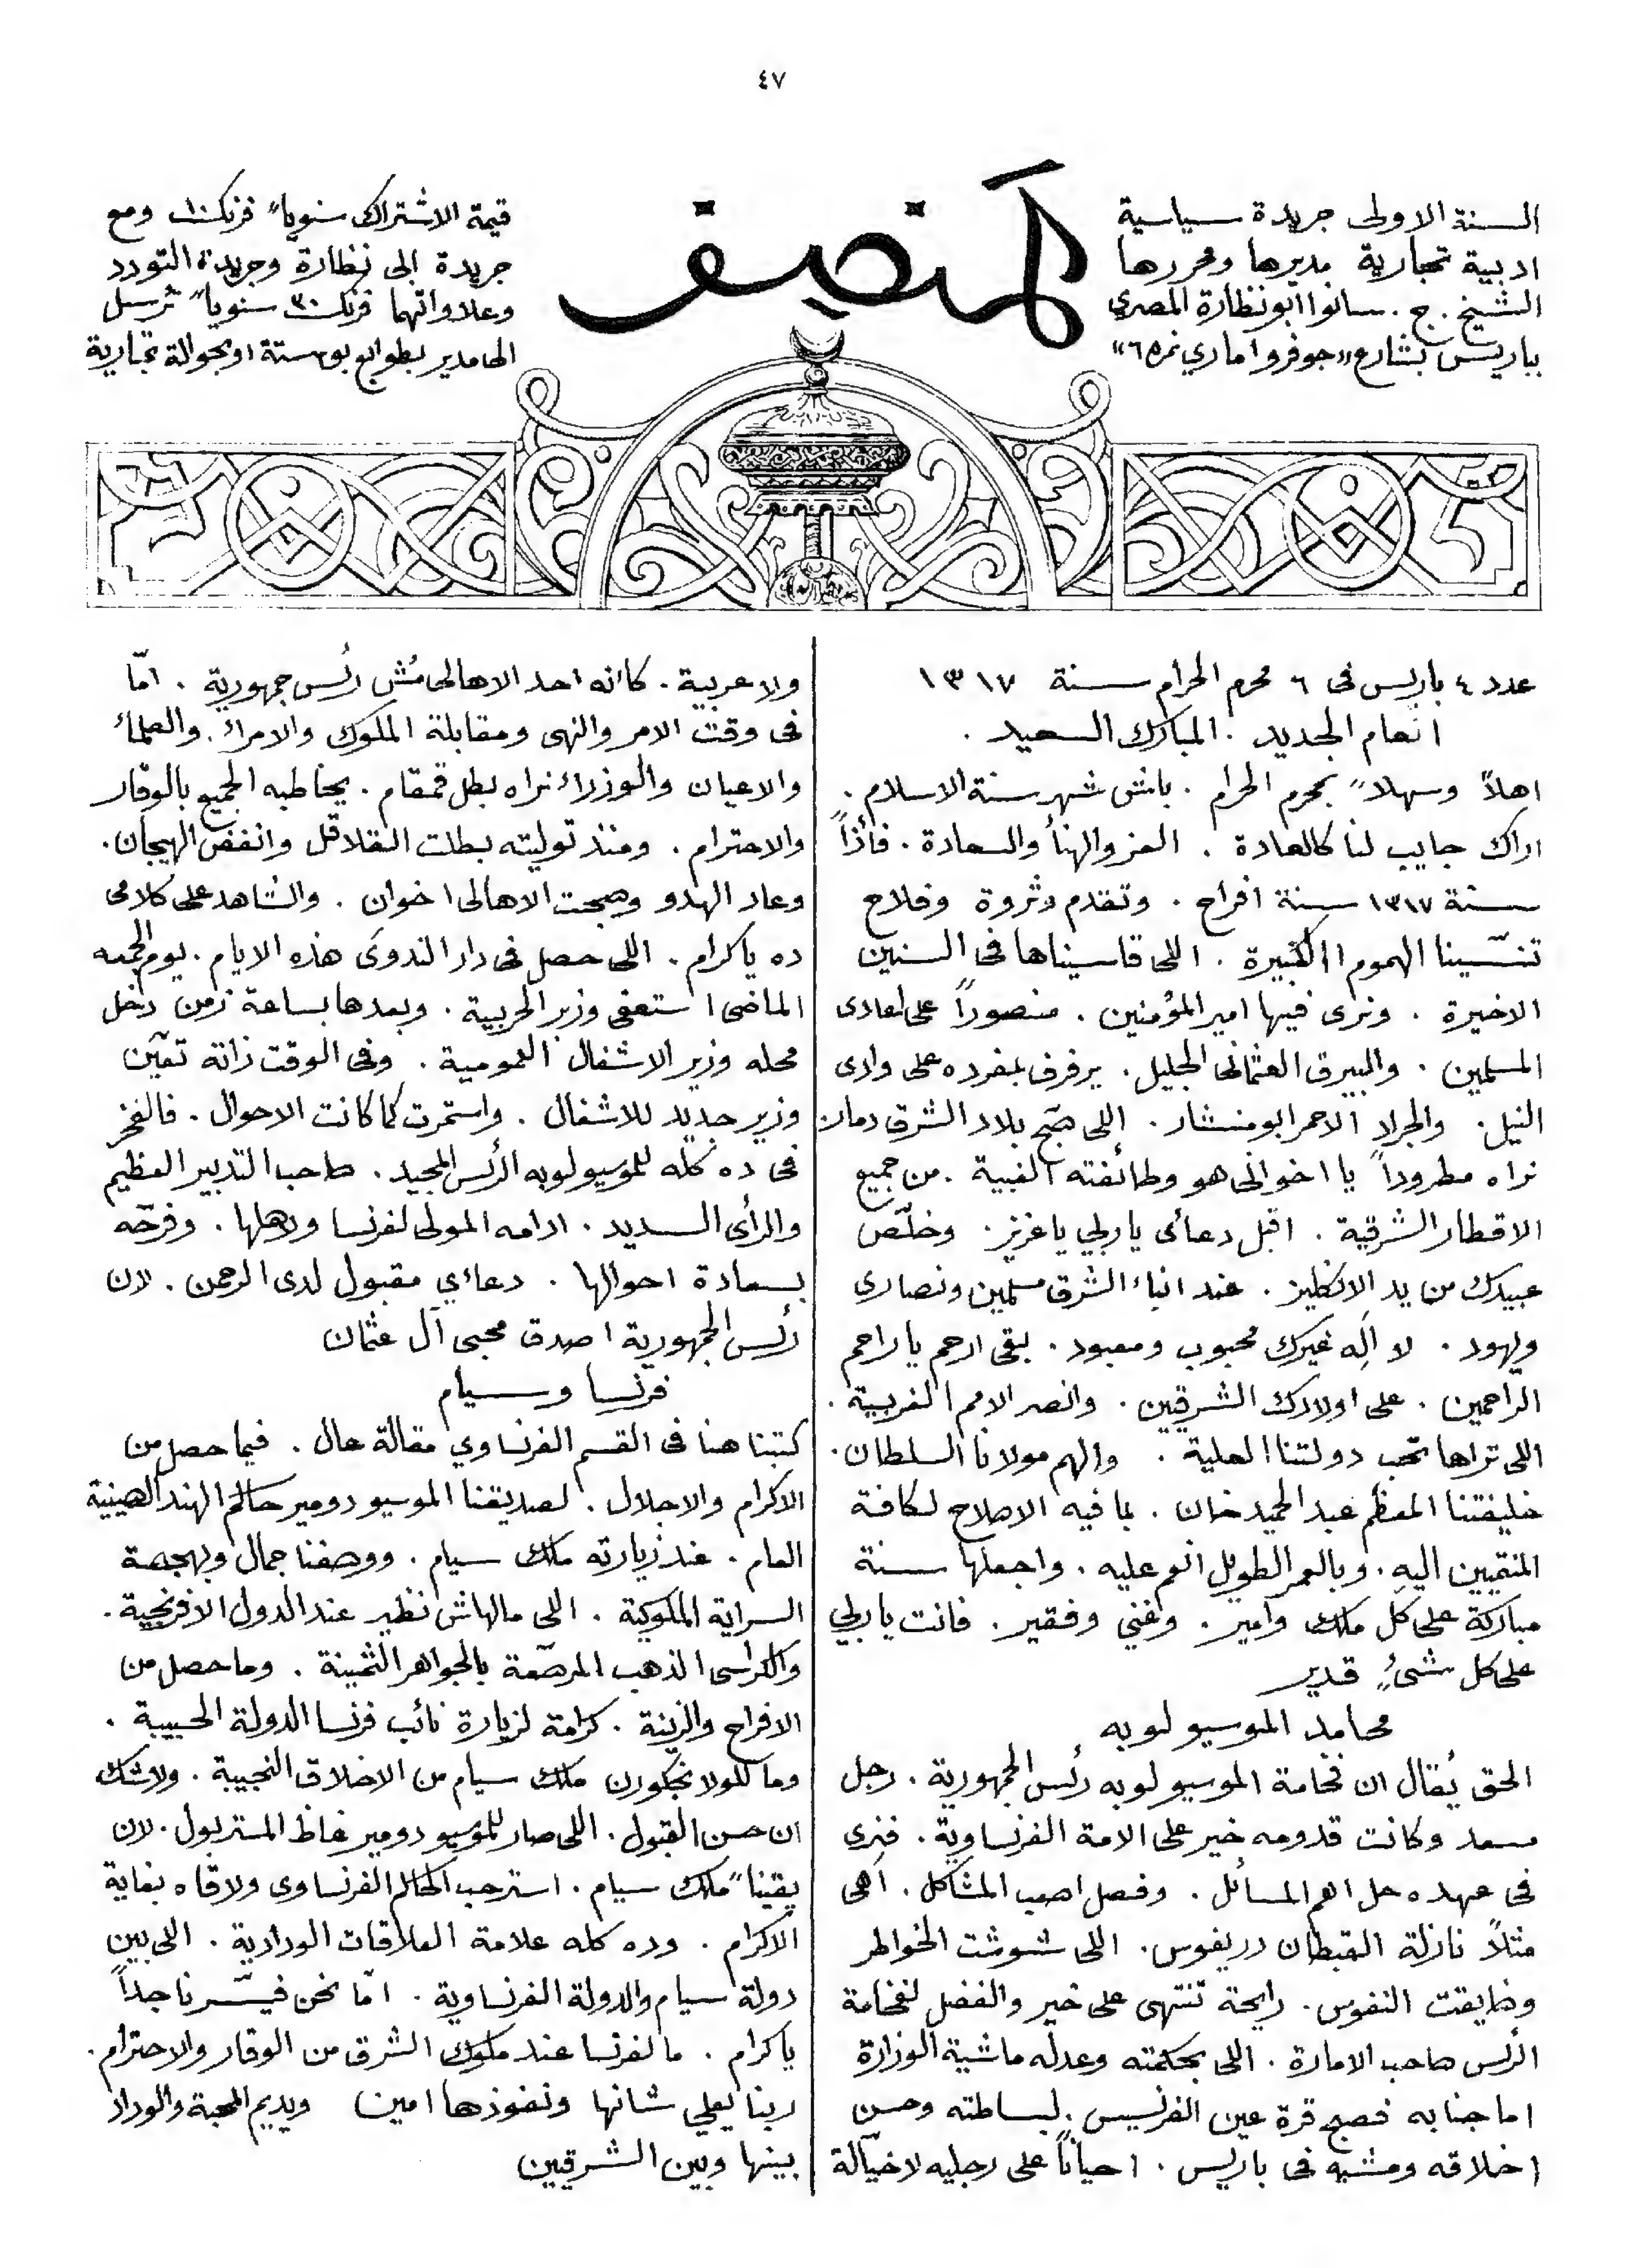 ٤٧
السنة الاولى جريدة سياسية
ادبية تجارية مديرها ومحررها
الشيخ . ج . سانوا ابو نظارة المصري
بباريس بشارع «جوفروا ماري نمره ٦»
المنصف
قيمة الاشتراك سنوياً فرنك ١٠ ومع
جريدة ابى نظارة وجريدة التودد
وعلاواتهما فرنك ٣٠ سنوياً ترسل
الى مدير بطوابع بوستة او بحوالة تجارية
عدد ٤ باريس فى ٦ محرم الحرام سنة ١٣١٧
العام الجديد . المبارك السعيد .
اهلاً وسهلاً بمحرم الحرام . باش شهر سنة الاسلام .
اراك جايب لنا كالعادة . العز والهنأ والسعادة . فاذاً
سنة ١٣١٧ سنة افراح . وتقدم وثروة وفلاح
تنسّينا الهموم الكبيرة . اللى قاسيناها فى السنين
الاخيرة . ونرى فيها امير المؤمنين . منصوراً على اعادى
المسلمين . والبيرق العثمانى الجليل . يرفرف بمفرده على وادى
النيل . والجراد الاحمر ابو منشار . اللى صبّح بلاد الشرق دمار
نراه مطروداً يا اخوانى هو وطائفته الغبية . من جميع
الاقطار الشرقية . اقبل دعائى يا ربي يا عزيز . وخلّص
عبيدك من يد الانكليز . عند ابناء الشرق مسلمين ونصارى
ويهود . لا اله غيرك محبوب ومعبود . بقى ارحم يا راحم
الراحمين . على اولادك الشرقيين . وانصر الامم الغربية .
اللى تراها تحب دولتنا العلية . والهم مولانا السلطان .
خليفتنا المعظم عبد الحميد خان . بما فيه الاصلاح لكافة
المنتميين اليه . وبالعمر الطويل انعم عليه . واجعلها سنة
مباركة على كل ملك وامير . وغني وفقير . فانت يا ربي
على كل شئ قدير
محامد الموسيو لوبه
الحق يُقال ان فخامة الموسيو لوبه رئس الجمهورية . رجل
سعد وكانت قدومه خير على الامة الفرنساوية . فنرى
فى عهده حل اهم المسائل . وفصل اصعب المشاكل . اهى
مثلاً نازلة القبطان دريفوس . اللى شوشت الخواطر
وضايقت النفوس . رايحة تنتهى على خير والفضل لفخامة
الرئس صاحب الامارة . اللى بحكمته وعدله ماشية الوزارة
اما جنابه فصبح قرة عين الفرنسيس . لبساطته وحسن
اخلاقه ومشيه فى باريس . احياناً على رجليه لا خيّالة
ولا عربية . كانه احد الاهالى مُش رئس جمهورية . امّا
فى وقت الامر والنهى ومقابلة الملوك والامراء . والعلماء
والاعيان والوزراء نراه بطل قمقام . يخاطبه الجميع بالوقار
والاحترام . ومنذ توليته بطلت القلاقل وانفض الهيجان .
وعاد الهدو وصبحت الاهالى اخوان . والشاهد على كلامى
ده يا كرام . اللى حصل فى دار الندوى هذه الايام . يوم الجمعه
الماضى استعفى وزير الحربية . وبعدها بساعة زمن دخل
محله وزير الاشغال العمومية . وفى الوقت ذاته تعيّن
وزير جديد للاشغال . واستمرت كما كانت الاحوال . فالفخر
فى ده كله للموسيو لوبه الرئس المجيد . صاحب التدبير العظيم
والرأى السديد . ادامه المولى لفرنسا وهلها . وفرحّه
بسعادة احوالها . دعاءي مقبول لدى الرحمن . لان
رئس الجمهورية اصدق محبى آل عثمان
فرنسا وسيام
كتبنا هنا فى القسم الفرنساوي مقالة عال . فيما حصل من
الاكرام والاجلال . لصديقنا الموسيو دومير حاكم الهند الصينية
العام . عند زيارته ملك سيام . ووصفنا جمال وبهجة
السراية الملوكية . اللى مالهاش نظير عند الدول الافرنجية .
والكراسى الذهب المرصّعة بالجواهر الثمينة . وما حصل من
الافراح والزينة . كرامة لزيارة نائب فرنسا الدولة الحبيبة .
وما ملك سيام من الاخلاق النجيبة . ولا شك
ان حسن القبول . اللى صار للموسيو دومير غاظ المستر بول . لان
يقيناً ملك سيام . استرحب الحاكم الفرنساوى ولاقاه بغاية
الاكرام . وده كله علامة العلاقات الودادية . اللى بين
دولة سيام والدولة الفرنساوية . امّا نحن فيسّرنا جداً
يا كرام . ما لفرنسا عند ملوك الشرق من الوقار والاحترام .
ربنا يعلي شانها ونفوذها امين ويديم المحبة والوداد
بينها وبين الشرقيين